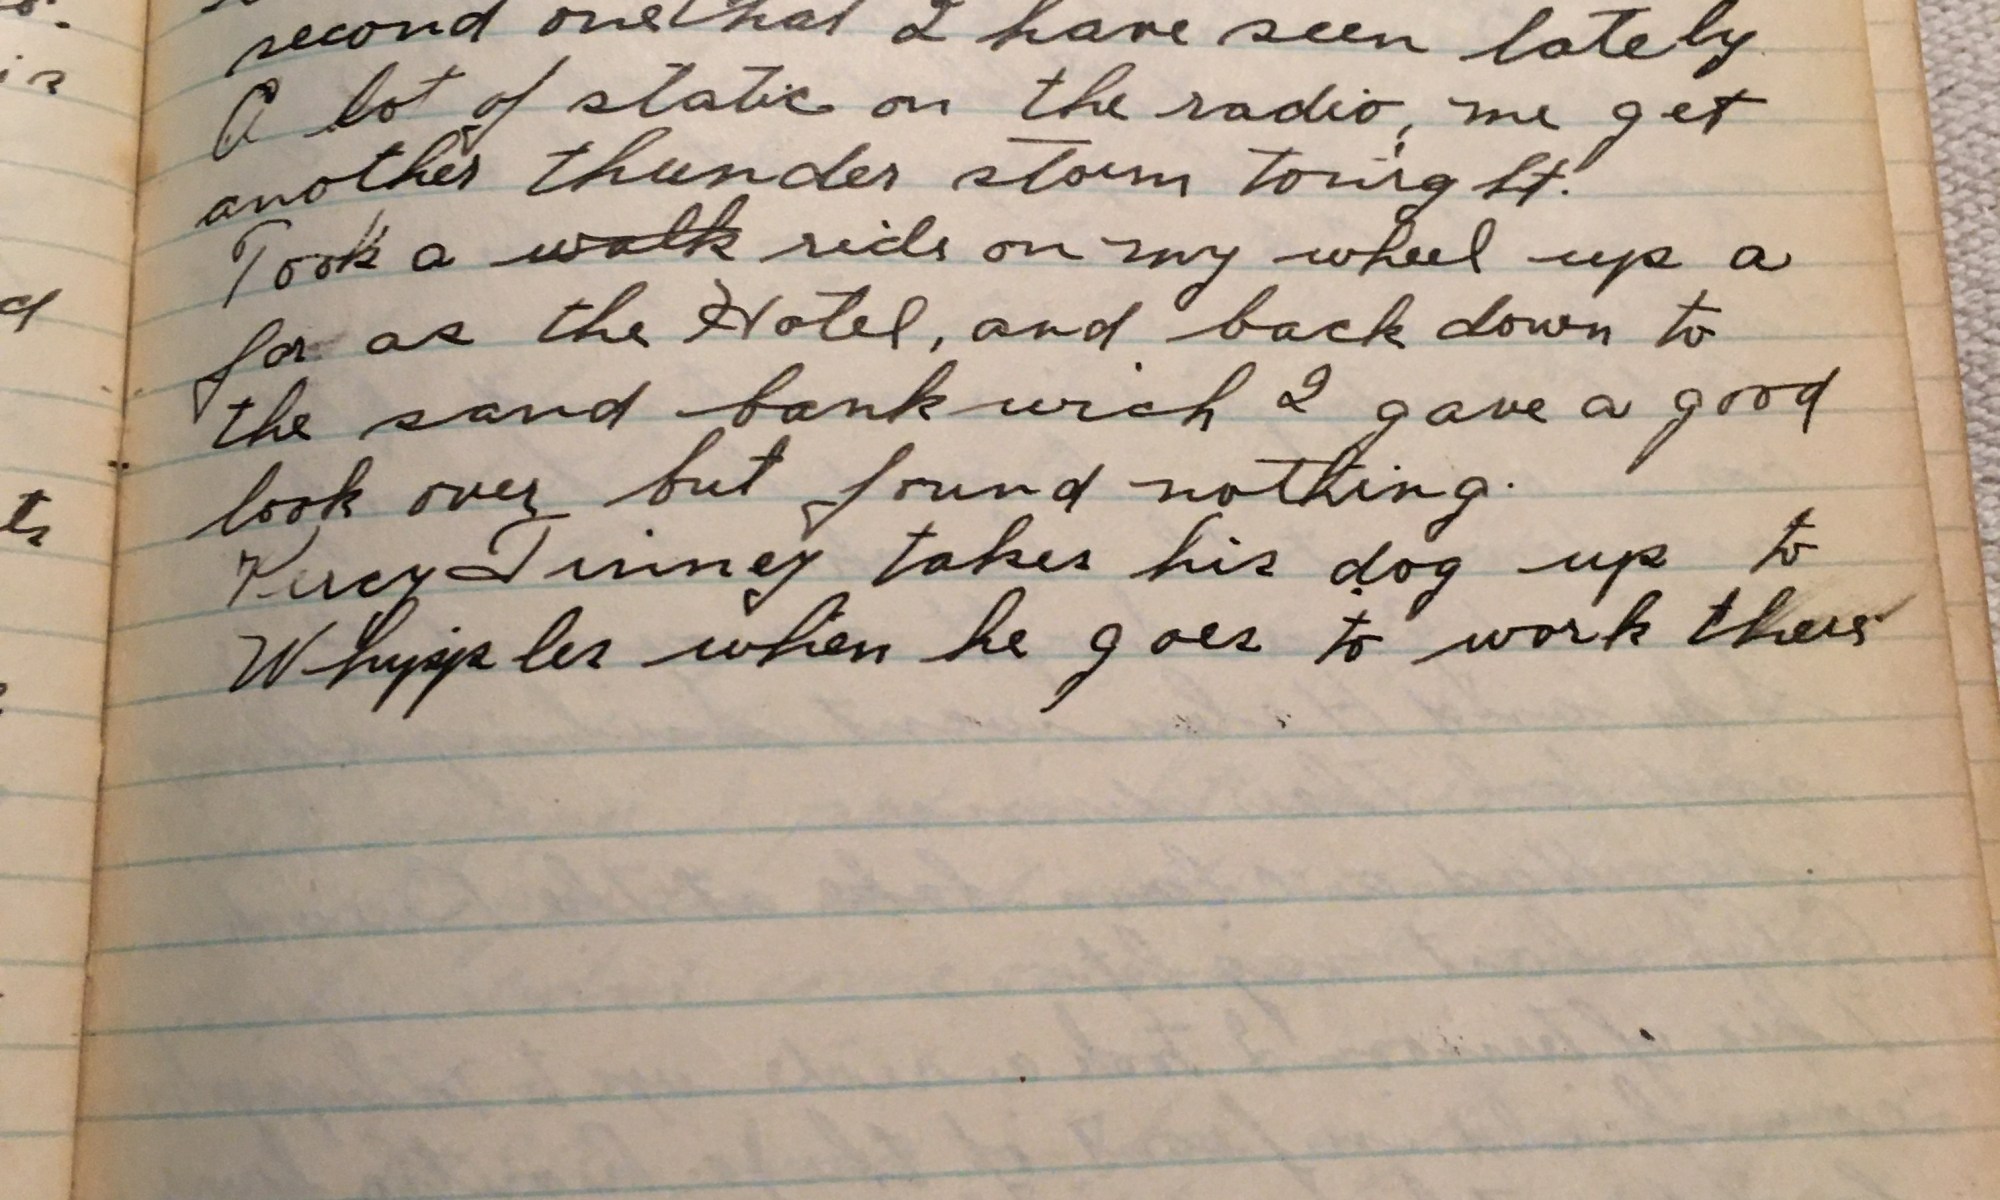 second one that I have seen lately
A lot of static on the radio, me get
another thunder storm tonight.
Took a walk ride on my wheel up a
far as the Hotel, and back down to
the sand bank wich I gave a good
look over but found nothing.
Percy Tinney takes his dog up to
Whipples when he goes to work there